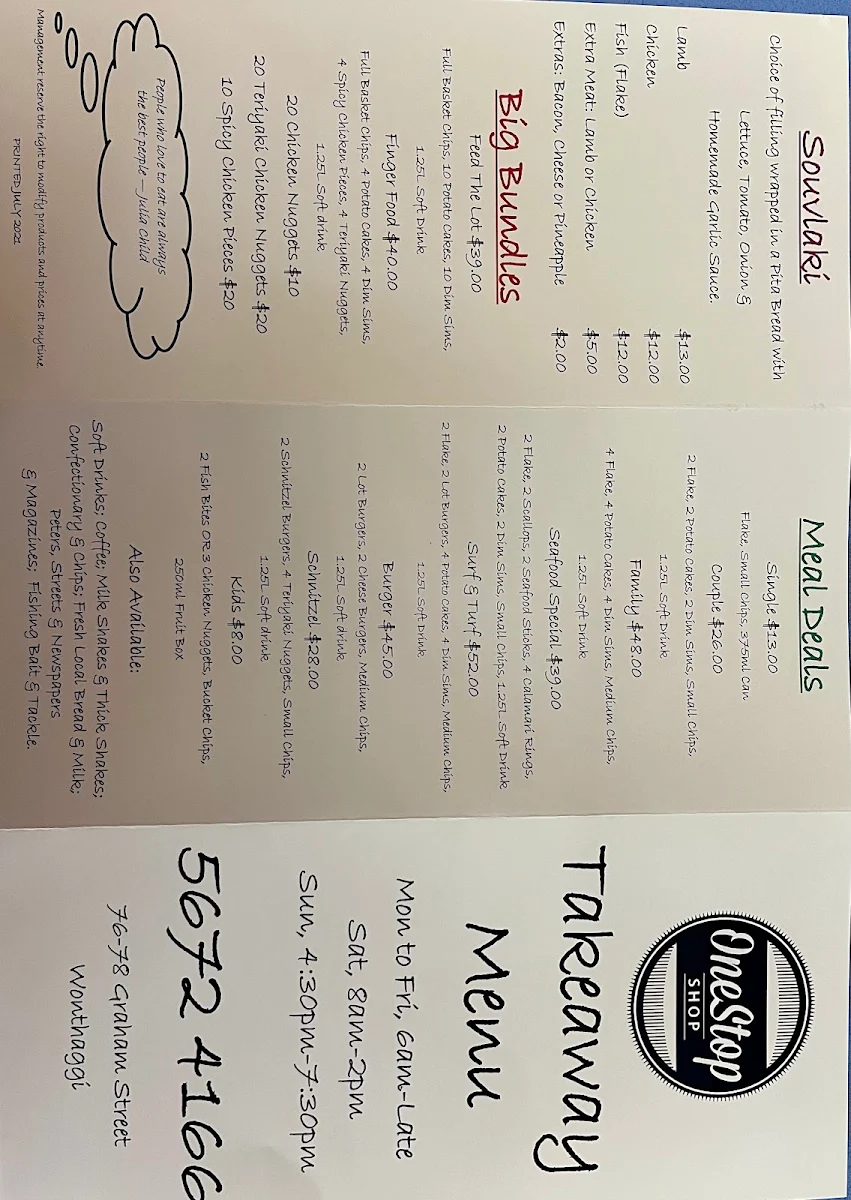 Souvlaki
Choice of filling wrapped in a Pita Bread with
Lettuce, Tomato, Onion &
Homemade Garlic Sauce.
Lamb $13.00
Chicken $12.00
Fish (Flake) $12.00
Extra Meat: Lamb or Chicken $5.00
Extras: Bacon, Cheese or Pineapple $2.00
Big Bundles
Feed The Lot $39.00
Full Basket Chips, 10 Potato Cakes, 10 Dim Sims,
1.25L Soft Drink
Finger Food $40.00
Full Basket Chips, 4 Potato Cakes, 4 Dim Sims,
4 Spicy Chicken Pieces, 4 Teriyaki Nuggets,
1.25L Soft drink
20 Chicken Nuggets $10
20 Teriyaki Chicken Nuggets $20
10 Spicy Chicken Pieces $20
People who love to eat are always
the best people – Julia Child
Management reserve the right to modify products and prices at anytime.
PRINTED JULY 2021
Meal Deals
Single $13.00
Flake, Small Chips, 375ml Can
Couple $26.00
2 Flake, 2 Potato Cakes, 2 Dim Sims, Small Chips,
1.25L Soft Drink
Family $48.00
4 Flake, 4 Potato Cakes, 4 Dim Sims, Medium Chips,
1.25L Soft Drink
Seafood Special $39.00
2 Flake, 2 Scallops, 2 Seafood Sticks, 4 Calamari Rings,
2 Potato Cakes, 2 Dim Sims, Small Chips, 1.25L Soft Drink
Surf & Turf $52.00
2 Flake, 2 Lot Burgers, 4 Potato Cakes 4 Dim Sims, Medium Chips,
1.25L Soft Drink
Burger $45.00
2 Lot Burgers, 2 Cheese Burgers, Medium Chips,
1.25L Soft drink
Schnitzel $28.00
2 Schnitzel Burgers, 4 Teriyaki Nuggets, Small Chips,
1.25L Soft drink
Kids $8.00
2 Fish Bites OR 3 Chicken Nuggets, Bucket Chips,
250ml Fruit Box
Also Available:
Soft Drinks; Coffee; Milk Shakes & Thick Shakes;
Confectionary & Chips; Fresh Local Bread & Milk;
Peters, Streets & Newspapers
& Magazines; Fishing Bait & Tackle.
OneStop
SHOP
Takeaway
Menu
Mon to Fri, 6am-Late
Sat, 8am-2pm
Sun, 4:30pm-7:30pm
5672 4166
76-78 Graham Street
Wonthaggi